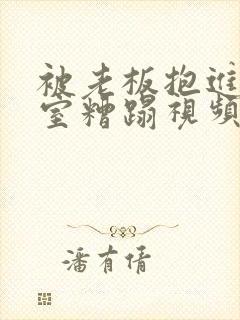 被老板抱進
室糟蹋視頻
潘有倩